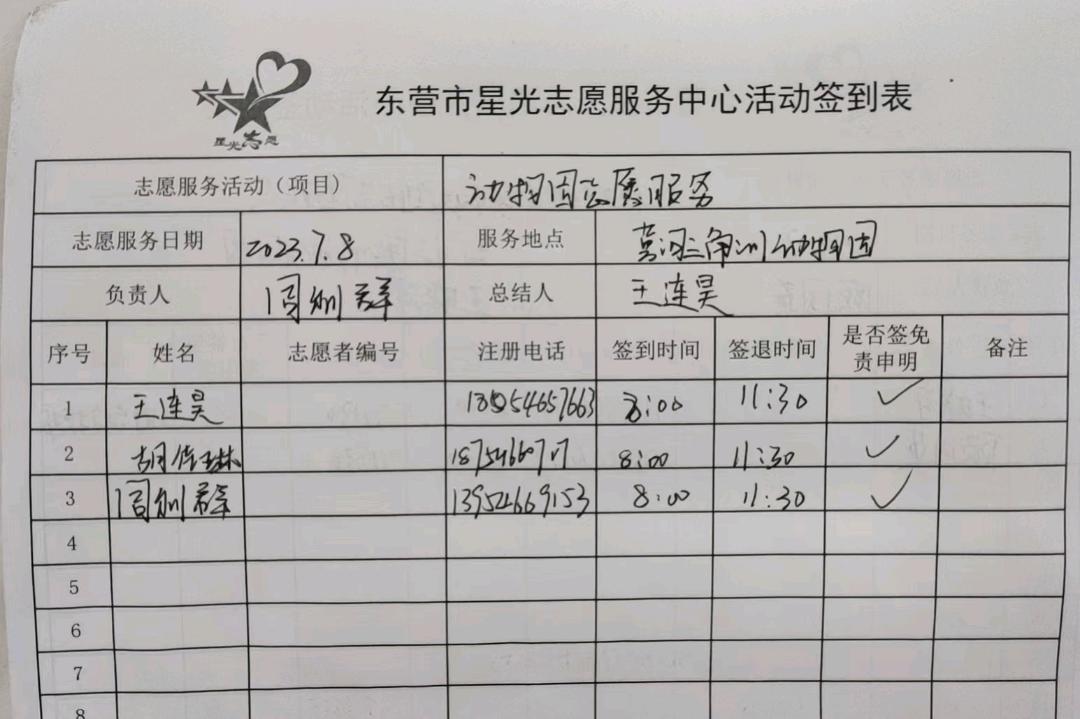 星光志愿
东营市星光志愿服务中心活动签到表
志愿服务活动（项目） 动物园志愿服务
志愿服务日期 2023.7.8 服务地点 黄河三角洲动物园
负责人 总结人 王连昊
序号 姓名 志愿者编号 注册电话 签到时间 签退时间 是否签免责申明 备注
1 王连昊 18554657663 8:00 11:30 ✓
2 8:00 11:30 ✓
3 13954669153 8:00 11:30 ✓
4
5
6
7
8